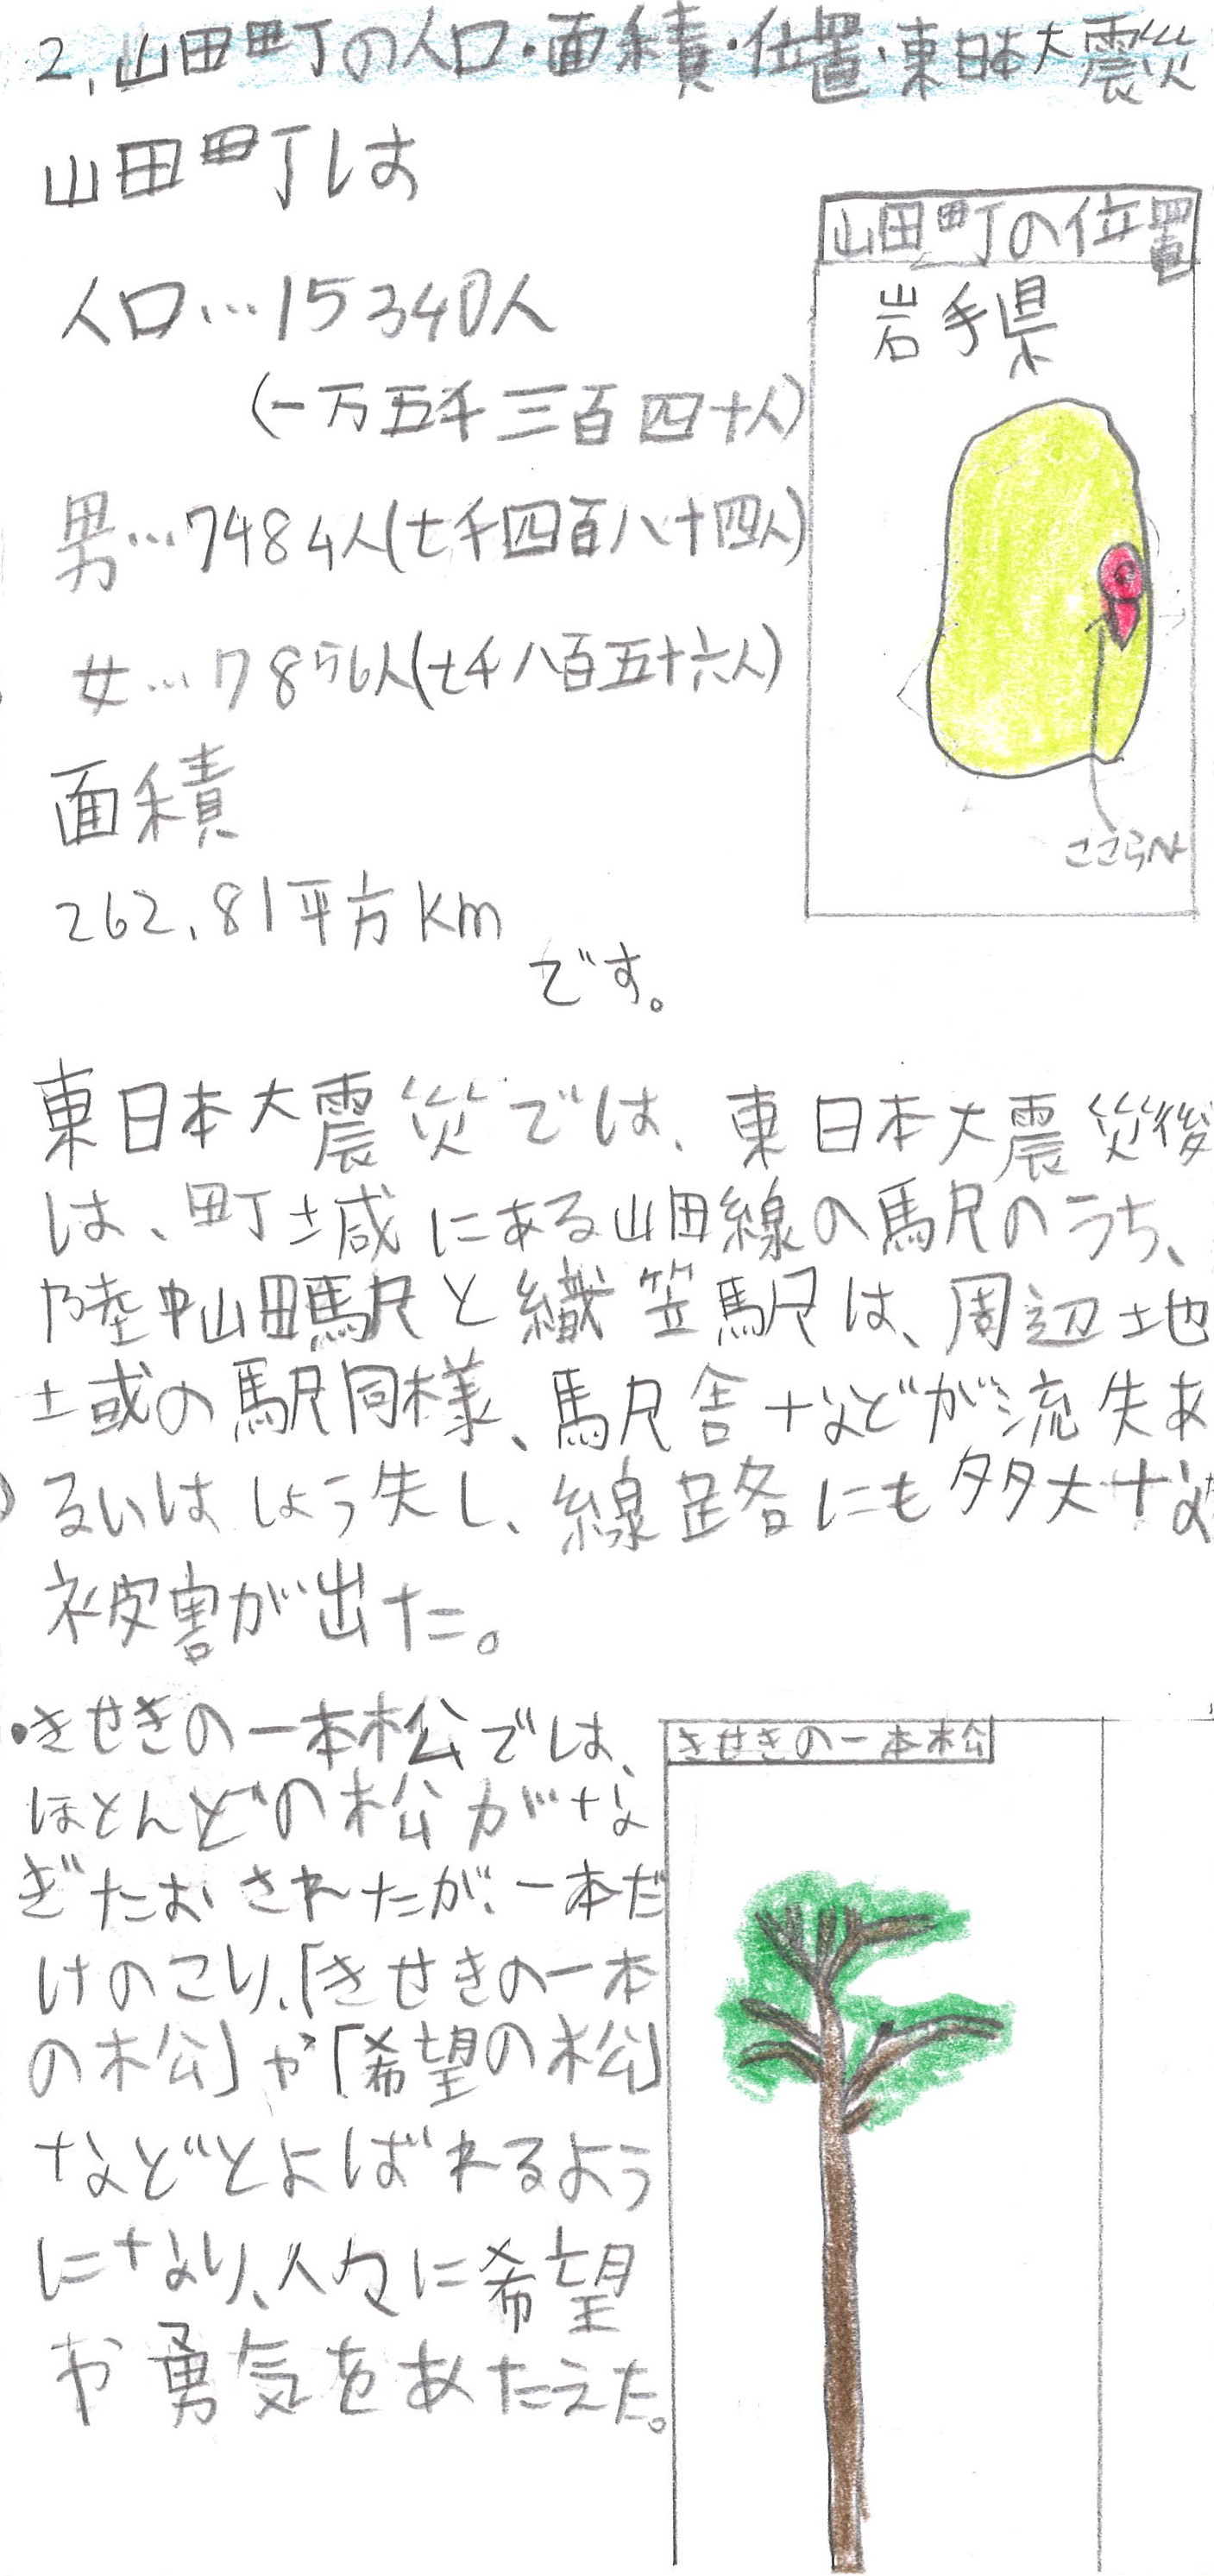 2,山田町の人口・面積・位置・東日本大震災
山田町は
人口…15340人
(一万五千三百四十人)
男…7484人(七千四百八十四人)
女…7856人(七千八百五十六人)
面積
262.81平方km
です。
山田町の位置
岩手県
ここらへん
東日本大震災では、東日本大震災後
は、町域にある山田線の駅のうち、
陸中山田駅と織笠駅は、周辺地
域の駅同様、駅舎などが流失あ
るいはしょう失し、線路にも多大な
被害が出た。
・きせきの一本松では、
ほとんどの松がな
ぎたおされたが、一本だ
けのこり、「きせきの一本
の松」や「希望の松」
などとよばれるよう
になり、人々に希望
や勇気をあたえた。
きせきの一本松